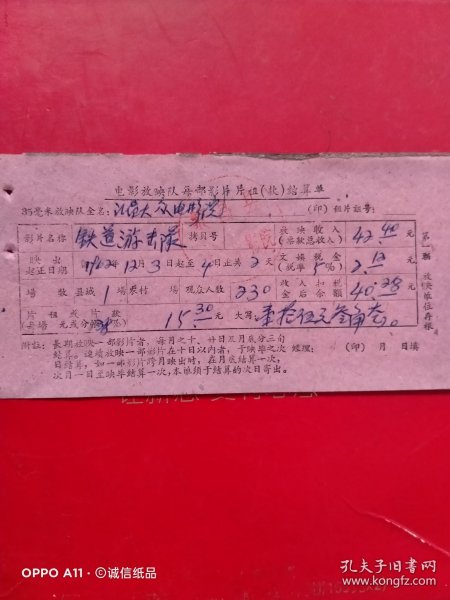 电影放映队每部影片片租(款)结算单
35毫米放映队全名：大众电影院 (印) 租片证号：
影片名称 铁道游击队 拷贝号 放映收入(票款总收入) 42.40 元
映出起止日期 1962年12月3日起至4日止共2天 文娱税金(税率5%) 2.12 元
场数 县城1场农村 场 观众人数 230 收入扣税金后余额 40.28 元
片租或片款 15.30元 大写：壹拾伍元叁角
第一联 放映单位存根
附注：长期放映一部影片者，每月之十、廿日及月底分三旬
结算。连续放映一部影片在十日以内者，于映毕之次
日结算，如一部影片跨月映出时，在月底结算一次，
次月一日至映毕结算一次，本单须于结算的次日寄出。
(印) 月 日填
OPPO A11 · ©诚信纸品
孔夫子旧书网
www.kongfz.com